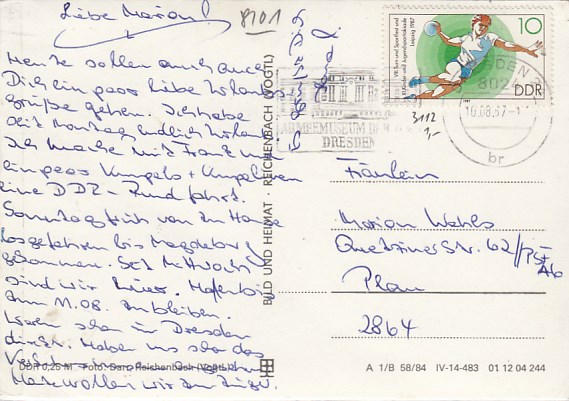 Liebe Marion!
8101
Heute sollen auch auch
Dich ein paar liebe Urlaubs
grüße gehen. Ich habe
seit Montag endlich Urlaub.
Ich mache mit Frank und
ein paar Kumpels +
eine DDR-Rundfahrt.
Sonntag früh von zu Hause
losgefahren bis Magdeburg
gekommen. Seit Mittwoch
sind wir hier.
zum 11.08. zu bleiben.
Waren schon in Dresden
direkt. Haben uns schon das
wollen wir
DDR 0,25 M Foto: Darr, Reichenbach (Vogtl.)
BILD UND HEIMAT · REICHENBACH (VOGTL)
VIII. Turn- und Sportfest und
XI. Kinder- und Jugendspartakiade
Leipzig 1987
10
DDR
1987
ARMEEMUSEUM DER DDR
DRESDEN
DRESDEN
802
10.08.87
br
3112
1,-
Fräulein
Marion Wahls
Quetziner Str. 62//PSF
A6
Plau
2864
A 1/B 58/84 IV-14-483 01 12 04 244